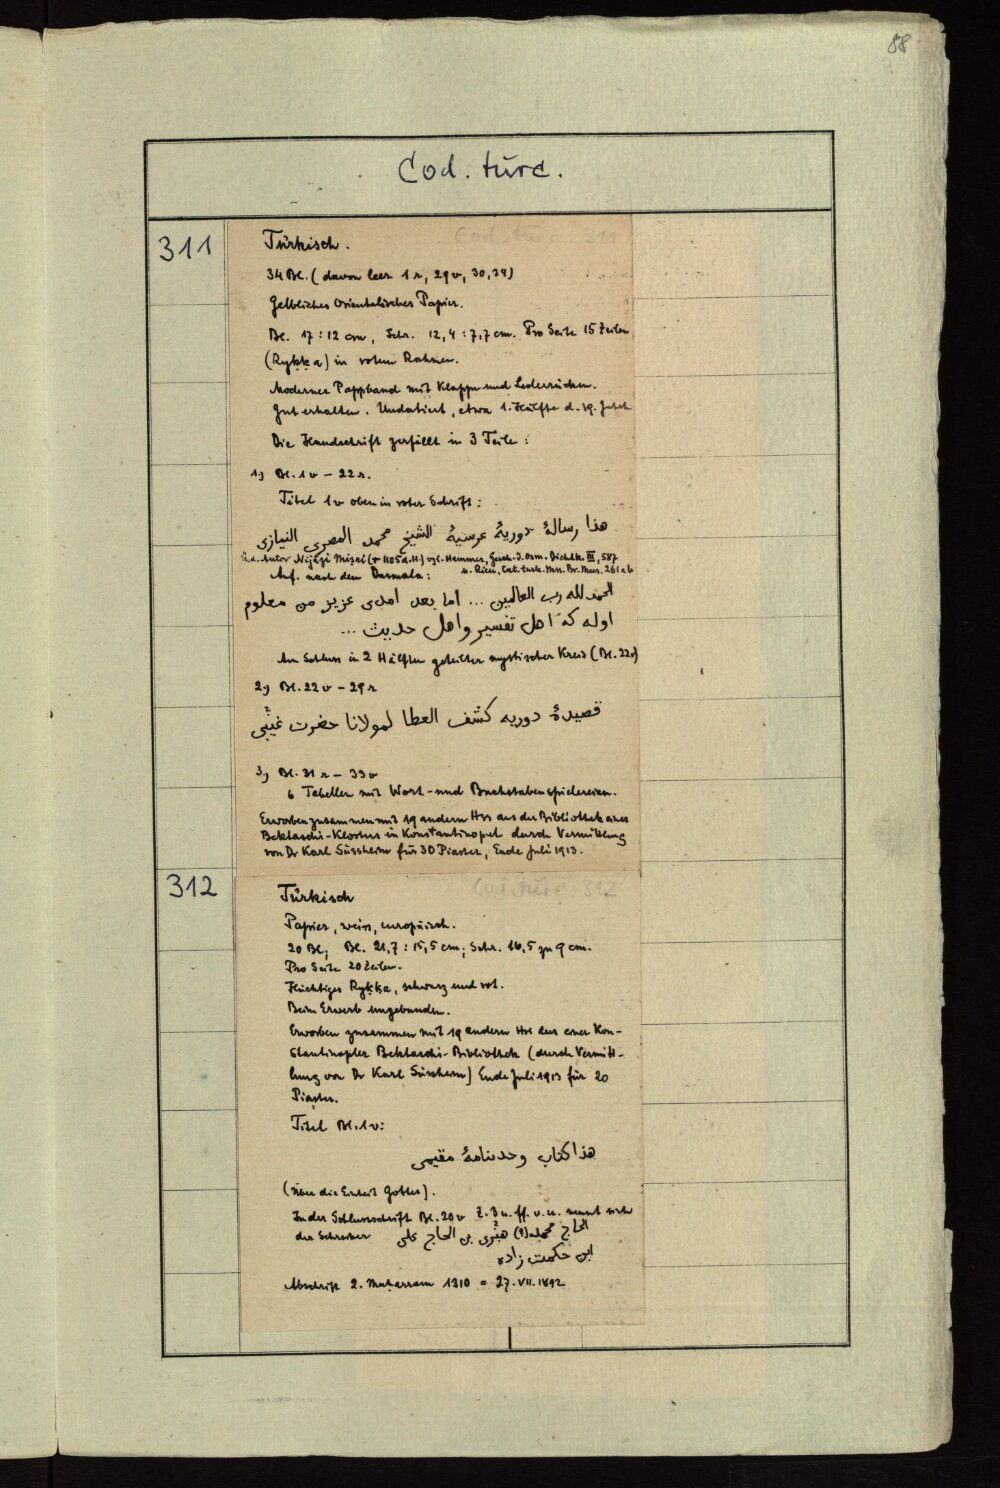 88
Cod. turc.
311
Cod. turc. 311
Türkisch.
34 Bl. (davon leer 1r, 29v, 30, 34)
Gelbliches Orientalisches Papier.
Bl. 17:12 cm, Schr. 12,4:7,7 cm. Pro Seite 15 Zeilen
(Ryḳḳa) in rotem Rahmen.
Moderner Pappband mit Klappe und Lederrücken.
Gut erhalten. Undatiert, etwa 1. Hälfte d. 19. Jahrh.
Die Handschrift zerfällt in 3 Teile:
1) Bl. 1v – 22r.
Titel 1v oben in roter Schrift:
هذا رسالهٔ دوريهٔ عرسيهٔ الشيخ محمد المصرى النيازى
Autor Nijâzî Miṣrî († 1105 d.H.) vgl. Hammer, Gesch. d. Osm. Dichtk. III, 587
u. Rieu, Cat. turk. Mss. Br. Mus. 261ab
Anf. nach dem Basmala:
الحمد لله رب العالمين ... اما بعد امدى عزيز من معلوم
اوله كه اهل تفسير واهل حديث ...
Am Schluss in 2 Hälften geteilter mystischer Kreis (Bl. 22r)
2) Bl. 22v – 29r
قصيدهٔ دوريه كشف الغطا لمولانا حضرت غيبى
3) Bl. 31r – 33v
6 Tabellen mit Wort- und Buchstabenspielereien.
Erworben zusammen mit 19 andern Hss aus der Bibliothek eines
Bektaschi-Klosters in Konstantinopel durch Vermittlung
von Dr Karl Süssheim für 30 Piaster, Ende Juli 1913.
312
Cod. turc. 312
Türkisch
Papier, weiss, europäisch.
20 Bl; Bl. 21,7:15,5 cm; Schr. 16,5 zu 9 cm.
Pro Seite 20 Zeilen.
Flüchtiges Ryḳḳa, schwarz und rot.
Beim Erwerb ungebunden.
Erworben zusammen mit 19 andern Hss aus einer Kon-
stantinopler Bektaschi-Bibliothek (durch Vermitt-
lung von Dr Karl Süssheim) Ende Juli 1913 für 20
Piaster.
Titel Bl. 1v:
هذا كتاب وحدتنامهٔ مقيمى
(Über die Einheit Gottes).
In der Schlussschrift Bl. 20v Z. 3 u. ff. v. u. nennt sich
der Schreiber الحاج (?) بن الحاج على
ابن حكمت زاده
Abschrift 2. Muḥarram 1310 = 27. VII. 1892